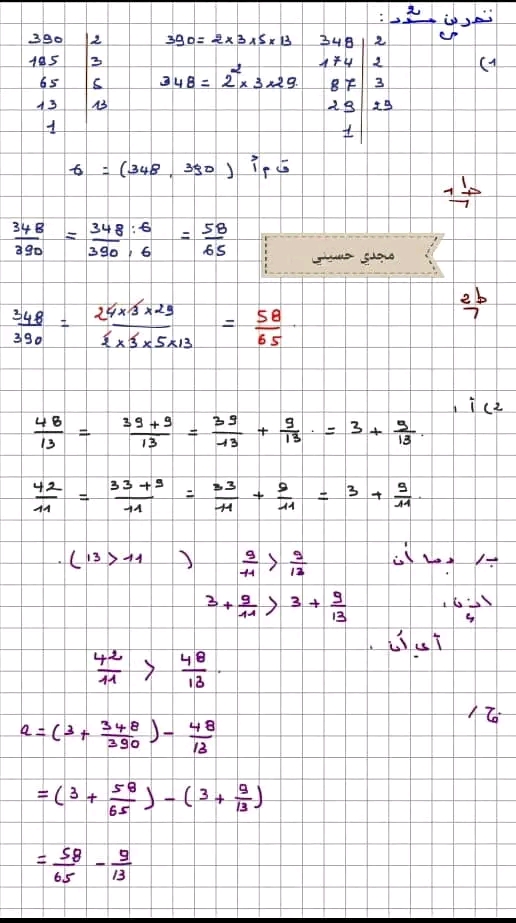 تمرين عدد 2 :
1)
390 | 2
195 | 3
65 | 5
13 | 13
1
390 = 2 x 3 x 5 x 13
348 = 2² x 3 x 29
348 | 2
174 | 2
87 | 3
29 | 29
1
ق م أ (390 , 348) = 6
ط1
348/390 = 348:6/390:6 = 58/65
مجدي حسيني
ط2
348/390 = 24x3x29/2x3x5x13 = 58/65.
2) أ .
48/13 = 39+9/13 = 39/13 + 9/13 = 3 + 9/13.
42/11 = 33+9/11 = 33/11 + 9/11 = 3 + 9/11.
ب/ بما أن 9/11 > 9/13 (13 > 11).
إذن، 3 + 9/11 > 3 + 9/13
أي أن .
42/11 > 48/13.
ج /
a = (3 + 348/390) - 48/13
= (3 + 58/65) - (3 + 9/13)
= 58/65 - 9/13